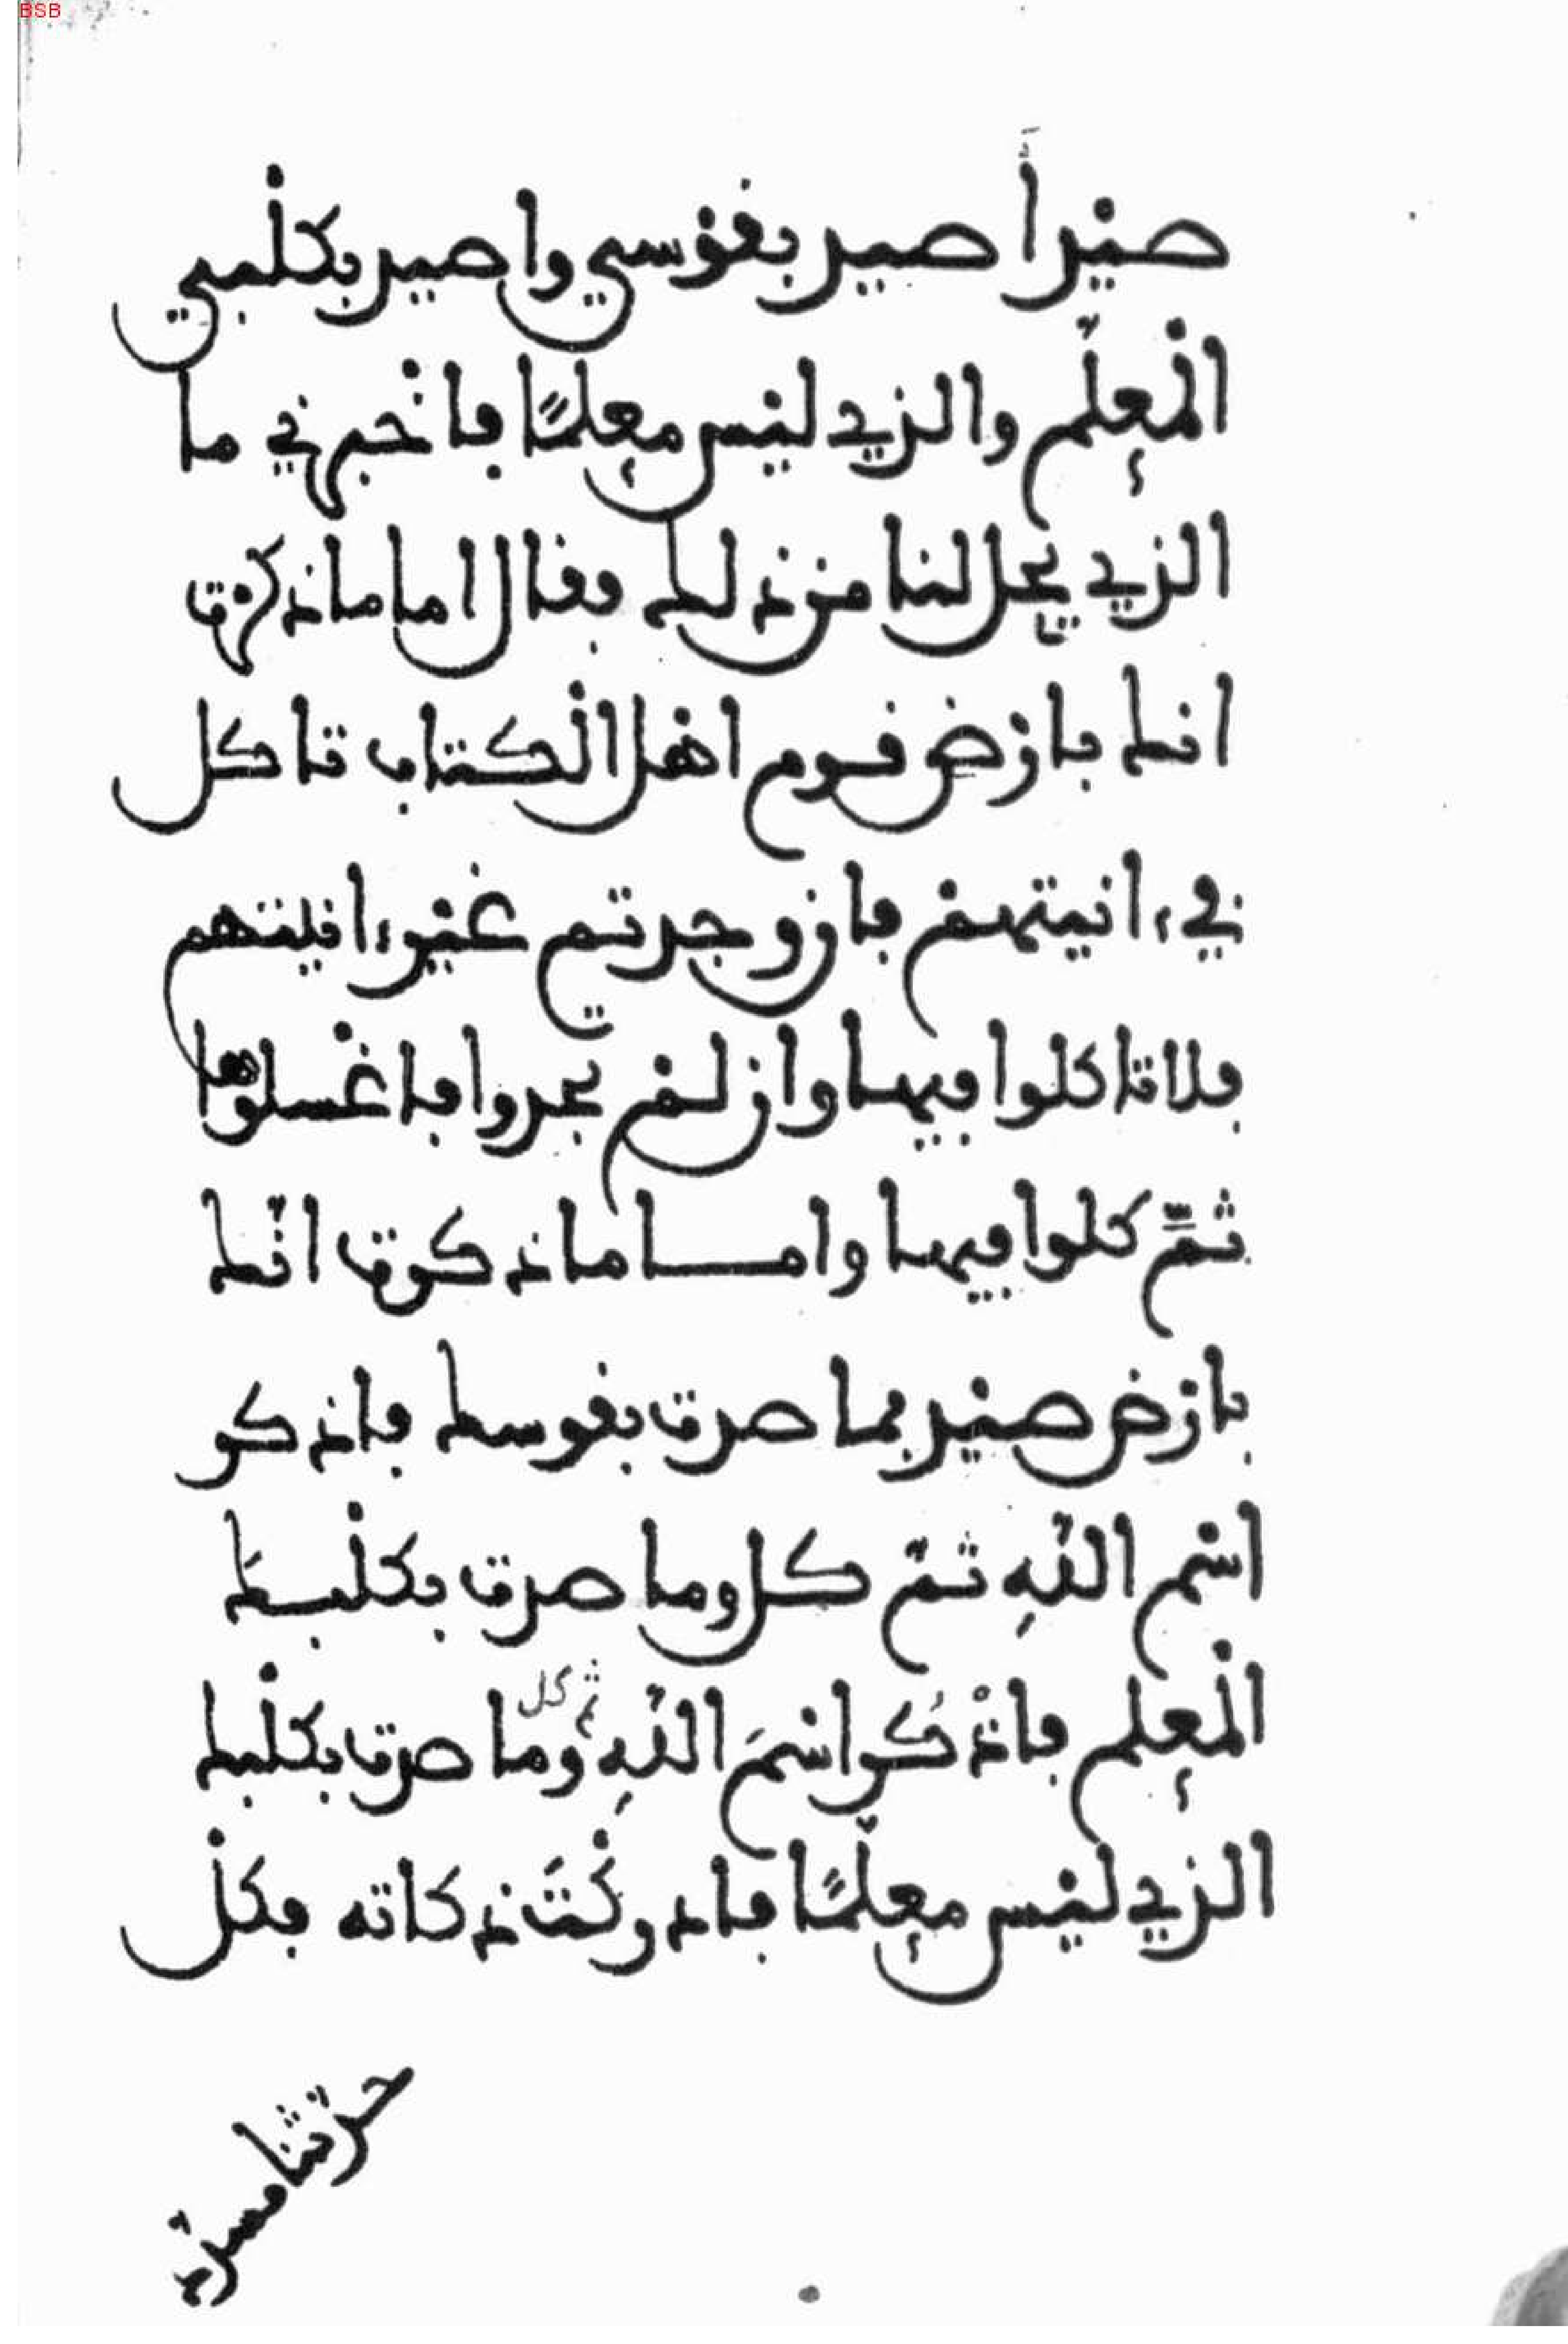 BSB
صَيْد أَصيد بقوسي واصيد بكلبي
الْمعلّم والذي ليْس معلمًا فاخْبرني ما
الذي يحل لنا من ذلك فقال اما ما ذكرْت
انك بارض قوم اهْل الْكتاب تاكل
في ءانيتهمْ فان وجدتم غيْرءانيتهم
فلا تاكلوا فيها وان لمْ تجدوا فاغْسلوها
ثمَّ كلوا فيها واما ما ذكرت انّك
بارض صيْد بما صدت بقوسك فاذكر
اسْم اللّهِ ثمّ كل وما صدت بكلْبك
الْمعلم فاذْكُر اسْمَ اللّهِ ثم كل وما صدت بكلْبك
الذي ليْس معلّمًا فادركْتَ ذكاته فكلْ
حدّثنا مسدّد